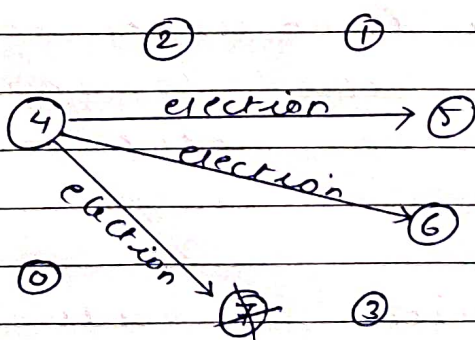 2 1
4 election 5
election
election 6
0
7 3